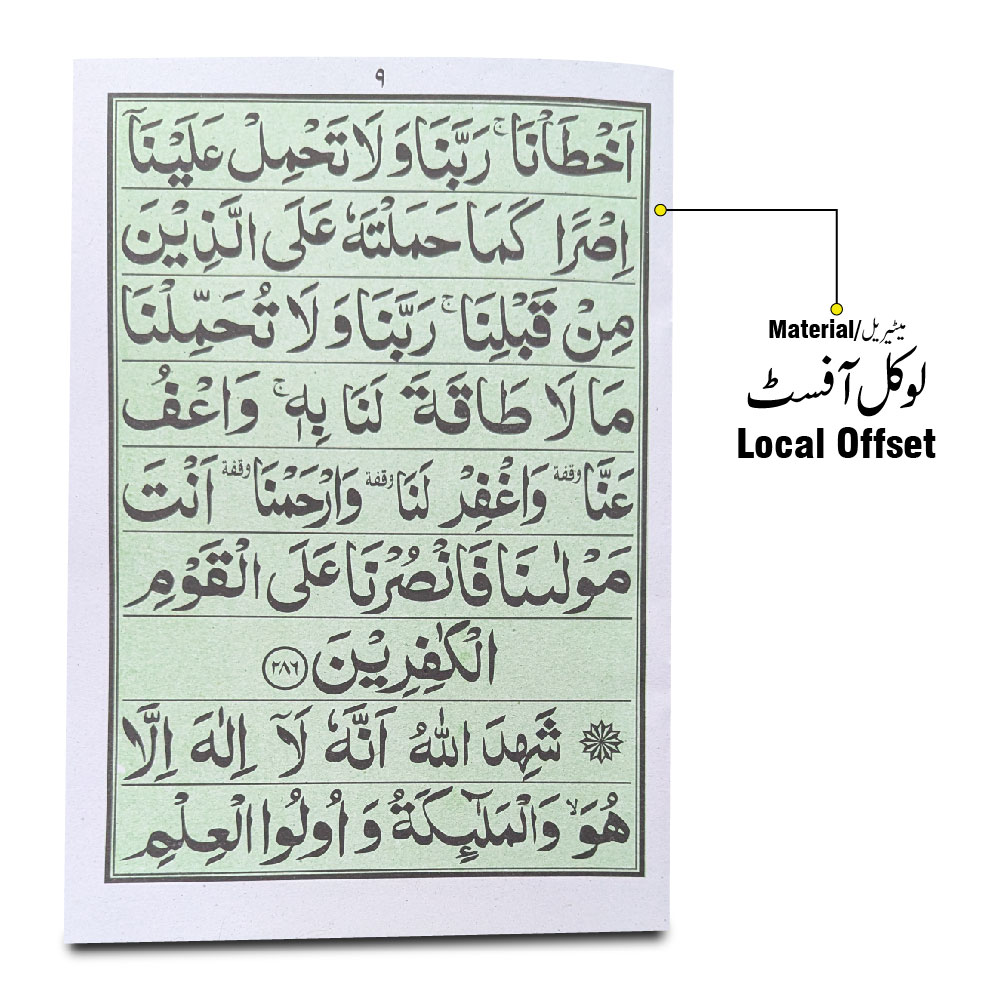 ٩
اَخْطَاْنَا ۚ رَبَّنَا وَ لَا تَحْمِلْ عَلَیْنَاۤ
اِصْرًا كَمَا حَمَلْتَهٗ عَلَی الَّذِیْنَ
مِنْ قَبْلِنَا ۚ رَبَّنَا وَ لَا تُحَمِّلْنَا
مَا لَا طَاقَةَ لَنَا بِهٖ ۚ وَاعْفُ
عَنَّا وقفة وَاغْفِرْ لَنَا وقفة وَارْحَمْنَا وقفة اَنْتَ
مَوْلٰىنَا فَانْصُرْنَا عَلَی الْقَوْمِ
الْكٰفِرِیْنَ ٢٨٦
شَهِدَ اللّٰهُ اَنَّهٗ لَاۤ اِلٰهَ اِلَّا
هُوَ ۙ وَالْمَلٰٓىِٕكَةُ وَ اُولُوا الْعِلْمِ
Material/میٹیریل
لوکل آفسٹ
Local Offset